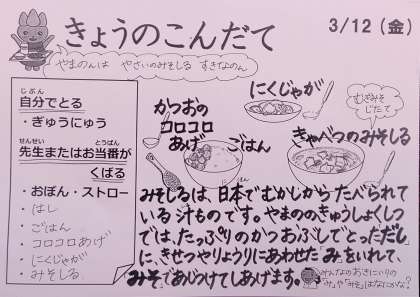 きょうのこんだて
3/12(金)
やまのんは やさいのみそしる すきなのん
じぶん
自分でとる
・ぎゅうにゅう
せんせい とうばん
先生またはお当番が
くばる
・おぼん・ストロー
・はし
・ごはん
・コロコロあげ
・にくじゃが
・みそしる
かつおの
コロコロ
あげ
ごはん
にくじゃが
むぎみそ
じたて
きゃべつのみそしる
みそしるは、日本でむかしからたべられて
いる汁ものです。やまののきゅうしょくしつ
では、たっぷりのかつおぶしでとっただし
に、きせつやりょうりにあわせた「み」をいれて、
みそであじつけてしあげます。
みんなのおきにいりの